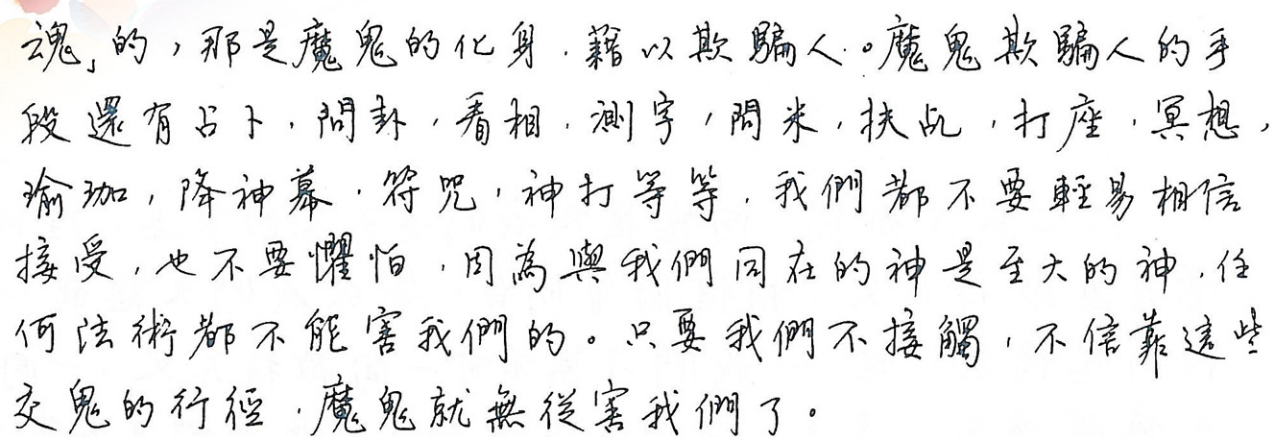 魂」的，那是魔鬼的化身，藉以欺騙人。魔鬼欺騙人的手
段還有占卜，問卦，看相，測字，問米，扶乩，打座，冥想，
瑜珈，降神幕，符咒，神打等等，我們都不要輕易相信
接受，也不要懼怕，因為與我們同在的神是至大的神，任
何法術都不能害我們的。只要我們不接觸，不信靠這些
交鬼的行徑，魔鬼就無從害我們了。